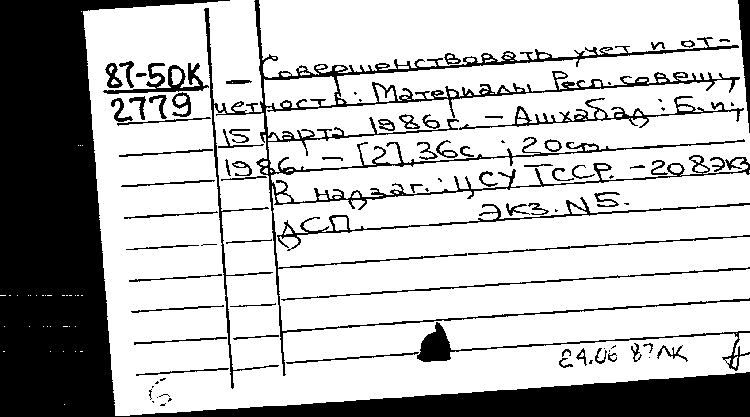 87-5DK
2779
— Совершенствовать учет и от-
четность: Материалы Респ. совещ.,
15 марта 1986г. – Ашхабад : Б.и.,
1986. – [2], 36с. ; 20см.
В надзаг.: ЦСУ ТССР. – 208экз
ДСП. экз. N5.
24.06 87 ЛК
6